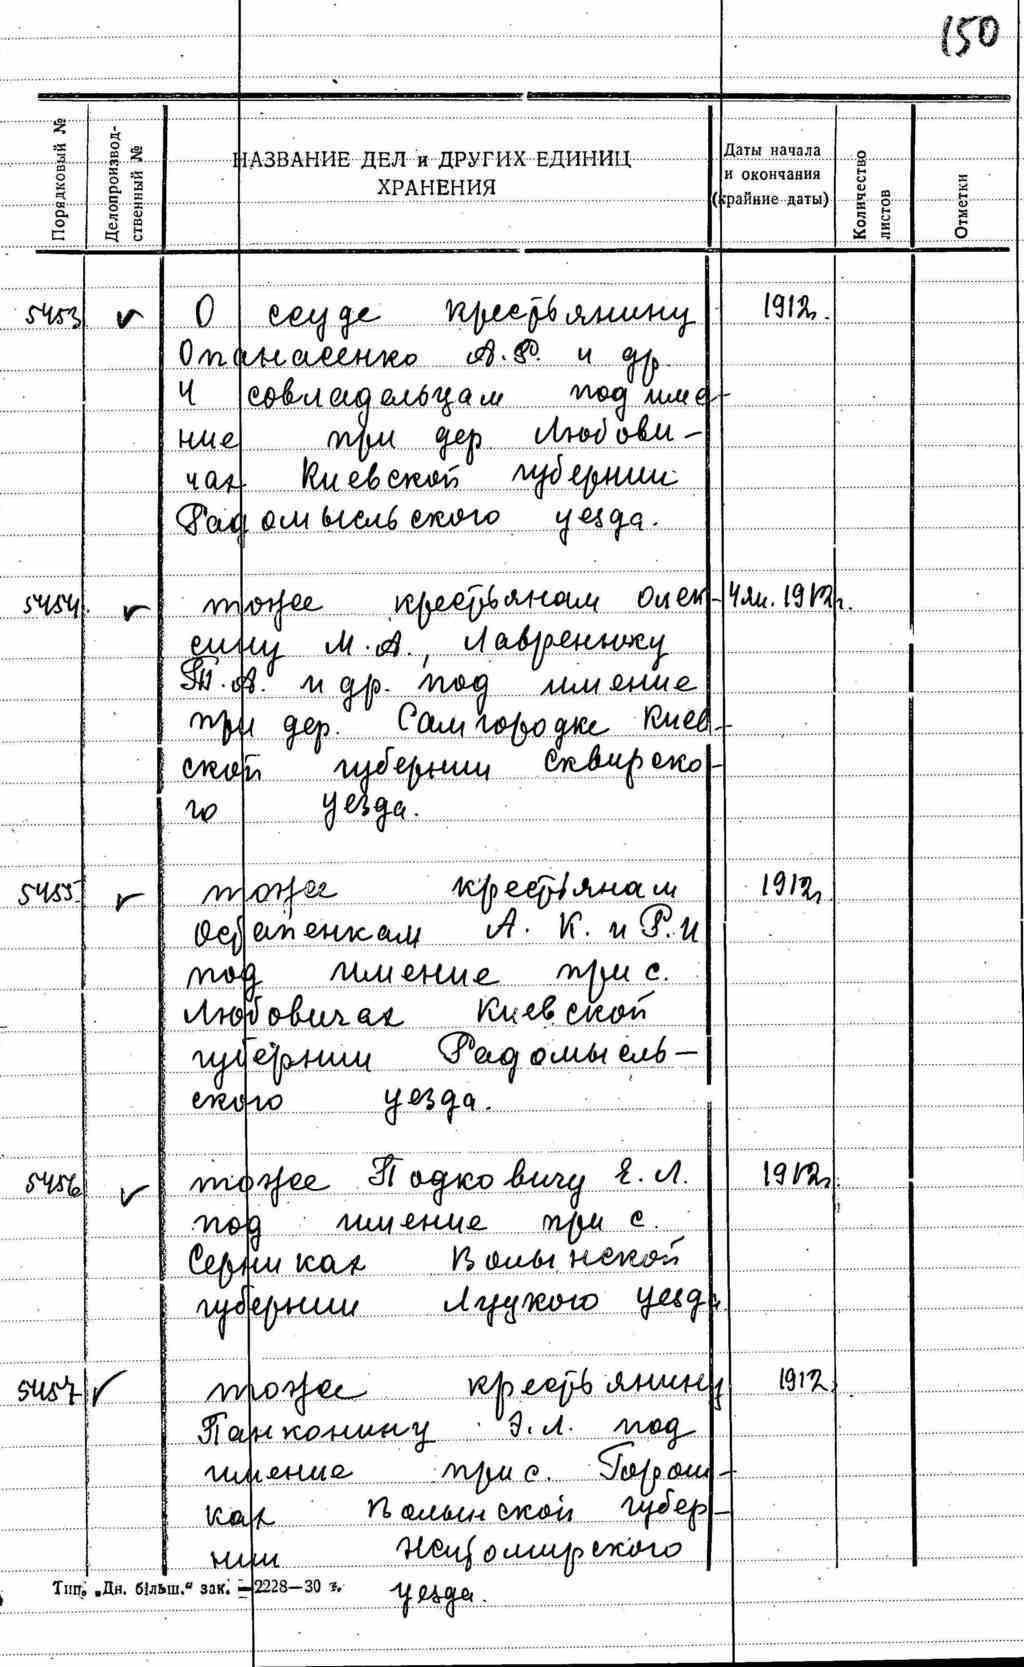 150
Порядковый №
Делопроизвод-
ственный №
НАЗВАНИЕ ДЕЛ и ДРУГИХ ЕДИНИЦ
ХРАНЕНИЯ
Даты начала
и окончания
(крайние даты)
Количество
листов
Отметки
5453 ✓ О ссуде крестьянину 1912г.
Опанасенко А.Ф. и др.
Ч совладельцам под име-
ние при дер. Любови-
чах Киевской губернии
Радомысльского уезда.
5454. ✓ тоже крестьянам Олек- Чян. 1912г.
сину М.А., Лавренюку
А. и др. под имение
при дер. Самгородке Киев-
ской губернии Сквирско-
го уезда.
5455 ✓ тоже крестьянам 1912г.
Остапенкам А. К. и Р.И
под имение при с.
Любовичах Киевской
губернии Радомысль-
ского уезда.
5456 ✓ тоже Подковичу Е.Л. 1912г.
под имение при с.
Серниках Волынской
губернии Луцкого уезда
5457 ✓ тоже крестьянину 1912
Панконину Э.Л. под
имение при с. Торош-
ках Волынской губер-
нии Житомирского
уезда.
Тип. „Дн. більш." зак. — 2228—30 г.